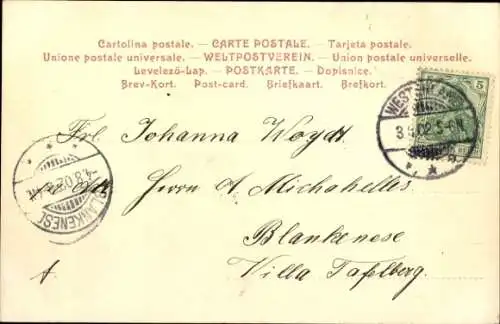 Cartolina postale. — CARTE POSTALE. — Tarjeta postale.
Unione postale universale. — WELTPOSTVEREIN. — Union postale universelle.
Levelező-Lap. — POSTKARTE. — Dopisnice.
Brev-Kort. Post-card. Briefkaart. Brefkort.
5
Frl. Johanna Woydt
Adr. Herrn A Michahelles
Blankenese
Villa Tafelberg.
BLANKENESE